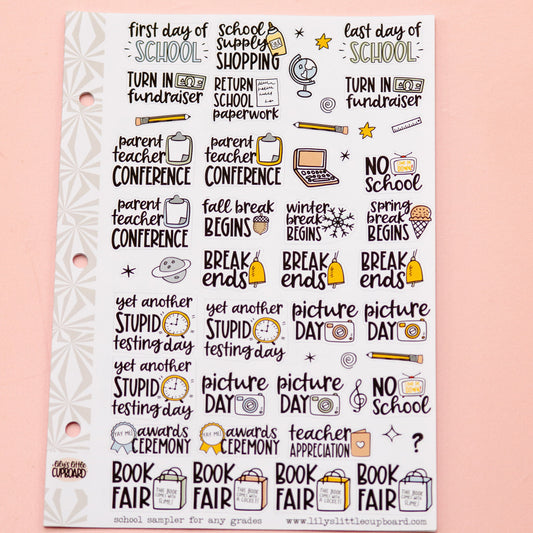 first day of
SCHOOL
school
supply
SHOPPING
last day of
SCHOOL
TURN IN
fundraiser
RETURN
SCHOOL
paperwork
TURN IN
fundraiser
parent
teacher
CONFERENCE
parent
teacher
CONFERENCE
NO
School
parent
teacher
CONFERENCE
fall break
BEGINS
winter
break
BEGINS
spring
break
BEGINS
BREAK
ends
BREAK
ends
BREAK
ends
yet another
STUPID
testing day
yet another
STUPID
testing day
picture
DAY
picture
DAY
yet another
STUPID
testing day
picture
DAY
picture
DAY
NO
School
TRY ME!
awards
CEREMONY
TRY ME!
awards
CEREMONY
teacher
APPRECIATION
?
lily's little
CUPBOARD
BOOK
FAIR
THIS BOOK
COMES WITH
SLIME!
BOOK
FAIR
THIS BOOK
COMES WITH
A LOCKET!
BOOK
FAIR
THIS BOOK
COMES WITH
A LOCKET!
BOOK
FAIR
THIS BOOK
COMES WITH
SLIME!
school sampler for any grades
www.lilyslittlecupboard.com